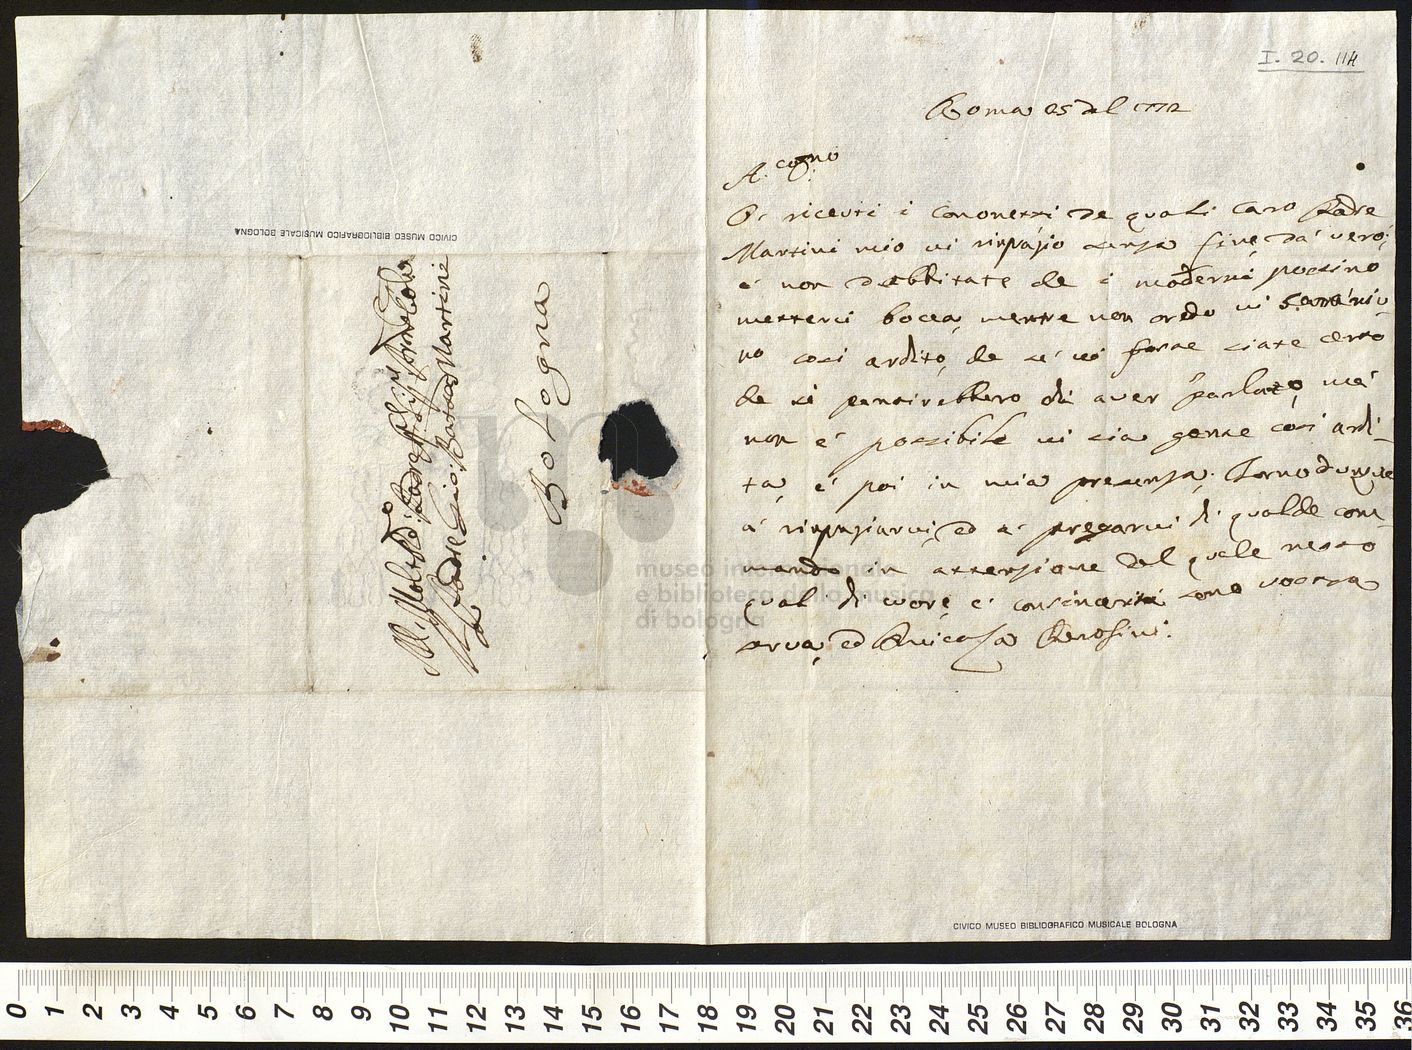 I. 20. 114
Roma 25 del 1772
A. Cogno
O' riceuti i Canonetti de quali Caro Padre
Martini mio vi rinpazio senza fine da vero,
e' non dubbitate che i moderni possino
metterci bocca, mentre non credo vi sarà niu-
no cosi ardito, che se vi fosse siate certo
che si pentirebbero di aver parlato, ma
non e' possibile vi sia gente cosi ardi-
ta, e' poi in mia presenza. Torno dunque
a' rinpaziarvi, ed a' pregarvi di qualche com-
mando in attenzione del quale resto
qual di cuore, e' con sincerità sono vostra
serva, ed Amica
Al Molto
Padre Gio: Batta Martini
Bologna
CIVICO MUSEO BIBLIOGRAFICO MUSICALE BOLOGNA
CIVICO MUSEO BIBLIOGRAFICO MUSICALE BOLOGNA
museo internazionale
e biblioteca della musica
di bologna
0 1 2 3 4 5 6 7 8 9 10 11 12 13 14 15 16 17 18 19 20 21 22 23 24 25 26 27 28 29 30 31 32 33 34 35 36